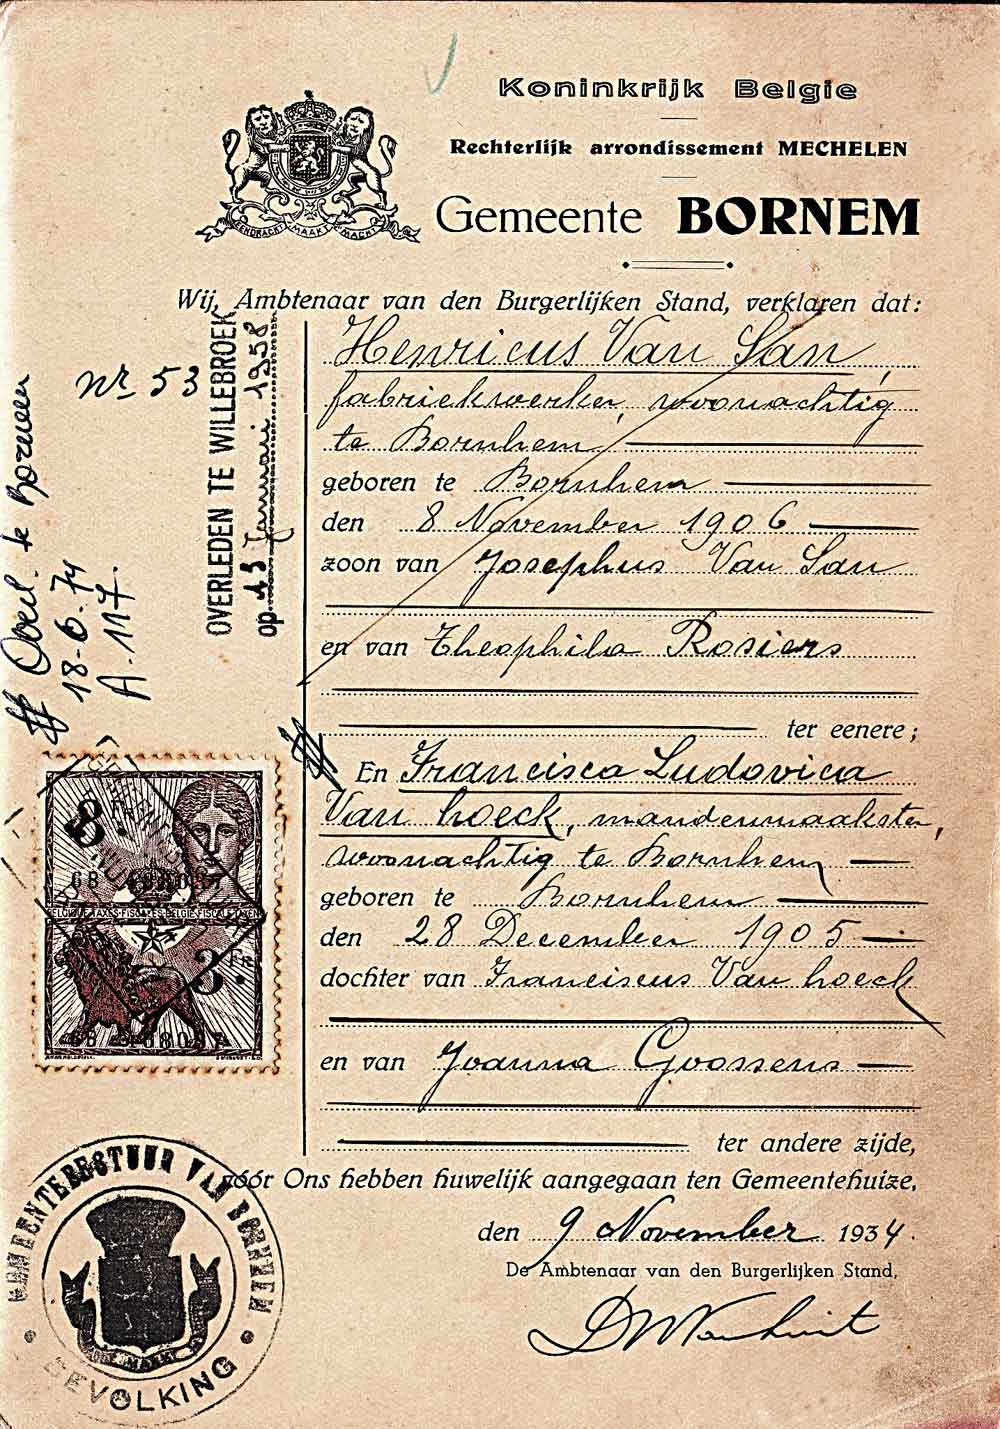 Koninkrijk Belgie
Rechterlijk arrondissement MECHELEN
Gemeente BORNEM
EENDRACHT MAAKT MACHT
Wij, Ambtenaar van den Burgerlijken Stand, verklaren dat:
Henricus Van San,
fabriekwerker, woonachtig
te Bornhem,
geboren te Bornhem
den 8 November 1906
zoon van Josephus Van San
en van Theophila Rosiers
ter eenere;
En Francisca Ludovica
Van hoeck, mandenmaakster,
woonachtig te Bornhem,
geboren te Bornhem
den 28 December 1905
dochter van Franciscus Van hoeck
en van Joanna Goossens
ter andere zijde,
vóór Ons hebben huwelijk aangegaan ten Gemeentehuize,
den 9 November 1934.
De Ambtenaar van den Burgerlijken Stand,
nr. 53
OVERLEDEN TE WILLEBROEK
op 13 Januari 1958
Overl. te Bornem
18-6-74
A. 117.
8 FR.
3 FR.
GEMEENTEBESTUUR VAN BORNEM
BEVOLKING